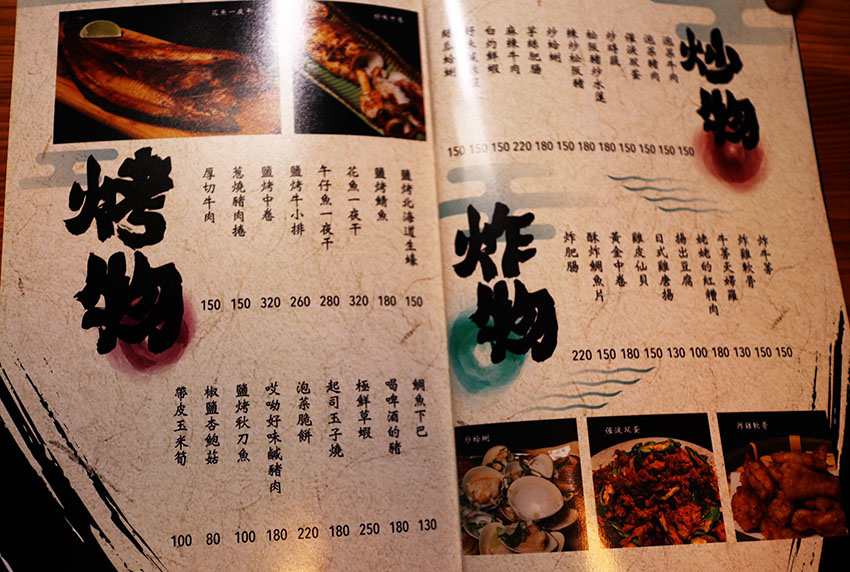 炒物
泡菜牛肉
泡菜豬肉
催淚双蛋
炒時蔬
松阪豬炒水蓮
辣炒松阪豬
炒蛤蜊
芋頭肥腸
麻辣牛肉
白灼鮮蝦
150 150 150 220 180 150 180 180 150 150 150 150
炸物
炸牛蒡
炸雞軟骨
牛蒡天婦羅
姥姥的紅糟肉
揚出豆腐
日式雞唐揚
雞皮仙貝
黃金中卷
酥炸鯛魚片
炸肥腸
220 150 180 150 130 100 180 130 150 150
炒蛤蜊
催淚双蛋
炸雞軟骨
花魚一夜干
烤物
鹽烤北海道生蠔
鹽烤鯖魚
花魚一夜干
午仔魚一夜干
鹽烤牛小排
鹽烤中卷
蔥燒豬肉捲
厚切牛肉
150 150 320 260 280 320 180 150
鯛魚下巴
喝啤酒的豬
極鮮草蝦
起司玉子燒
泡菜脆餅
哎呦好味鹹豬肉
鹽烤秋刀魚
椒鹽杏鮑菇
帶皮玉米筍
100 80 100 180 220 180 250 180 130